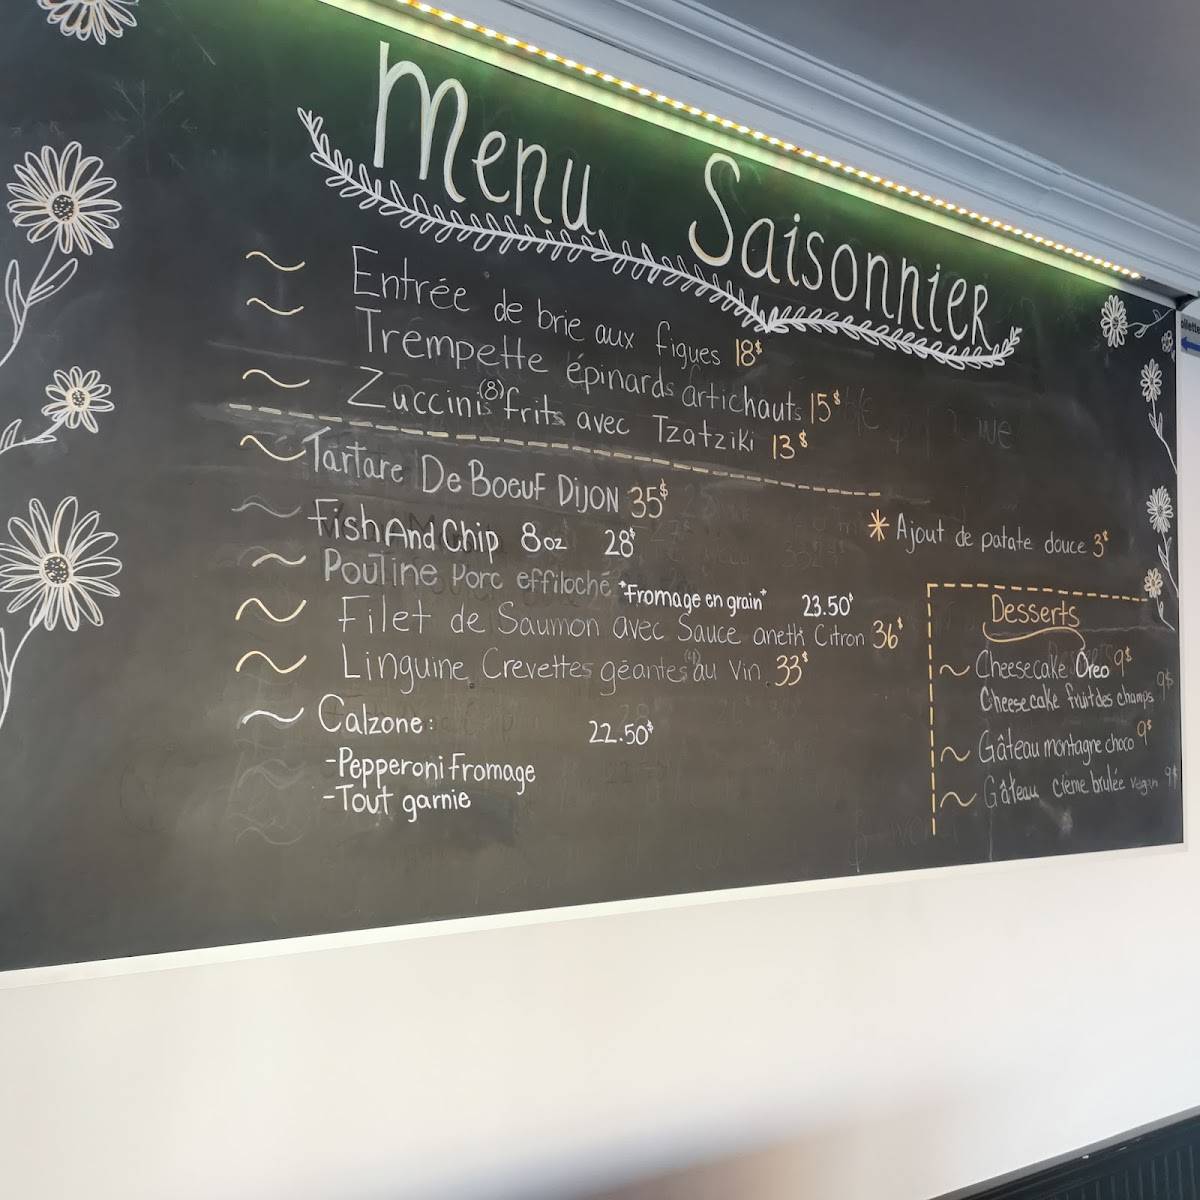 Menu Saisonnier
Entrée de brie aux figues 18$
Trempette épinards artichauts 15$
Zuccinis (8) frits avec Tzatziki 13$
Tartare De Boeuf Dijon 35$
Fish And Chip 8oz 28$
Poutine Porc effiloché *Fromage en grain* 23.50$
Filet de Saumon avec Sauce aneth Citron 36$
Linguine Crevettes géantes (4) au Vin 33$
Calzone: 22.50$
-Pepperoni Fromage
-Tout garnie
* Ajout de patate douce 3$
Desserts
Cheesecake Oreo 9$
Cheesecake fruit des champs 9$
Gâteau montagne choco 9$
Gâteau crème brulée vegan 9$